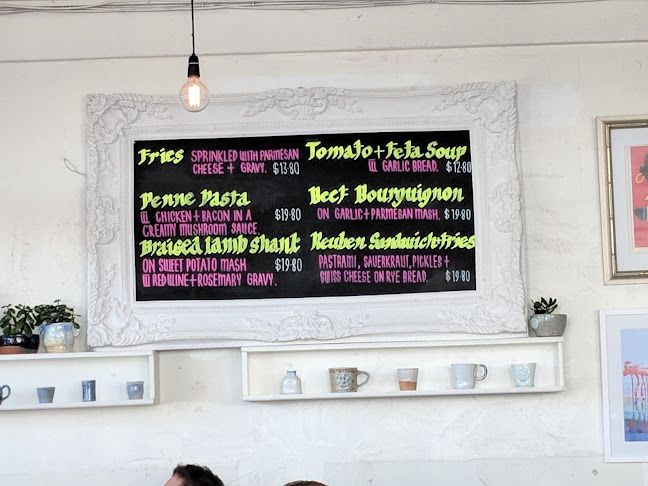 Fries SPRINKLED WITH PARMESAN
CHEESE + GRAVY. $13.80
Penne Pasta
W CHICKEN + BACON IN A $19.80
CREAMY MUSHROOM SAUCE.
Braised lamb shank
ON SWEET POTATO MASH $19.80
W RED WINE + ROSEMARY GRAVY.
Tomato + Feta Soup
W GARLIC BREAD. $12.80
Beef Bourguignon
ON GARLIC + PARMESAN MASH. $19.80
Reuben Sandwich + fries
PASTRAMI, SAUERKRAUT, PICKLES +
SWISS CHEESE ON RYE BREAD. $19.80